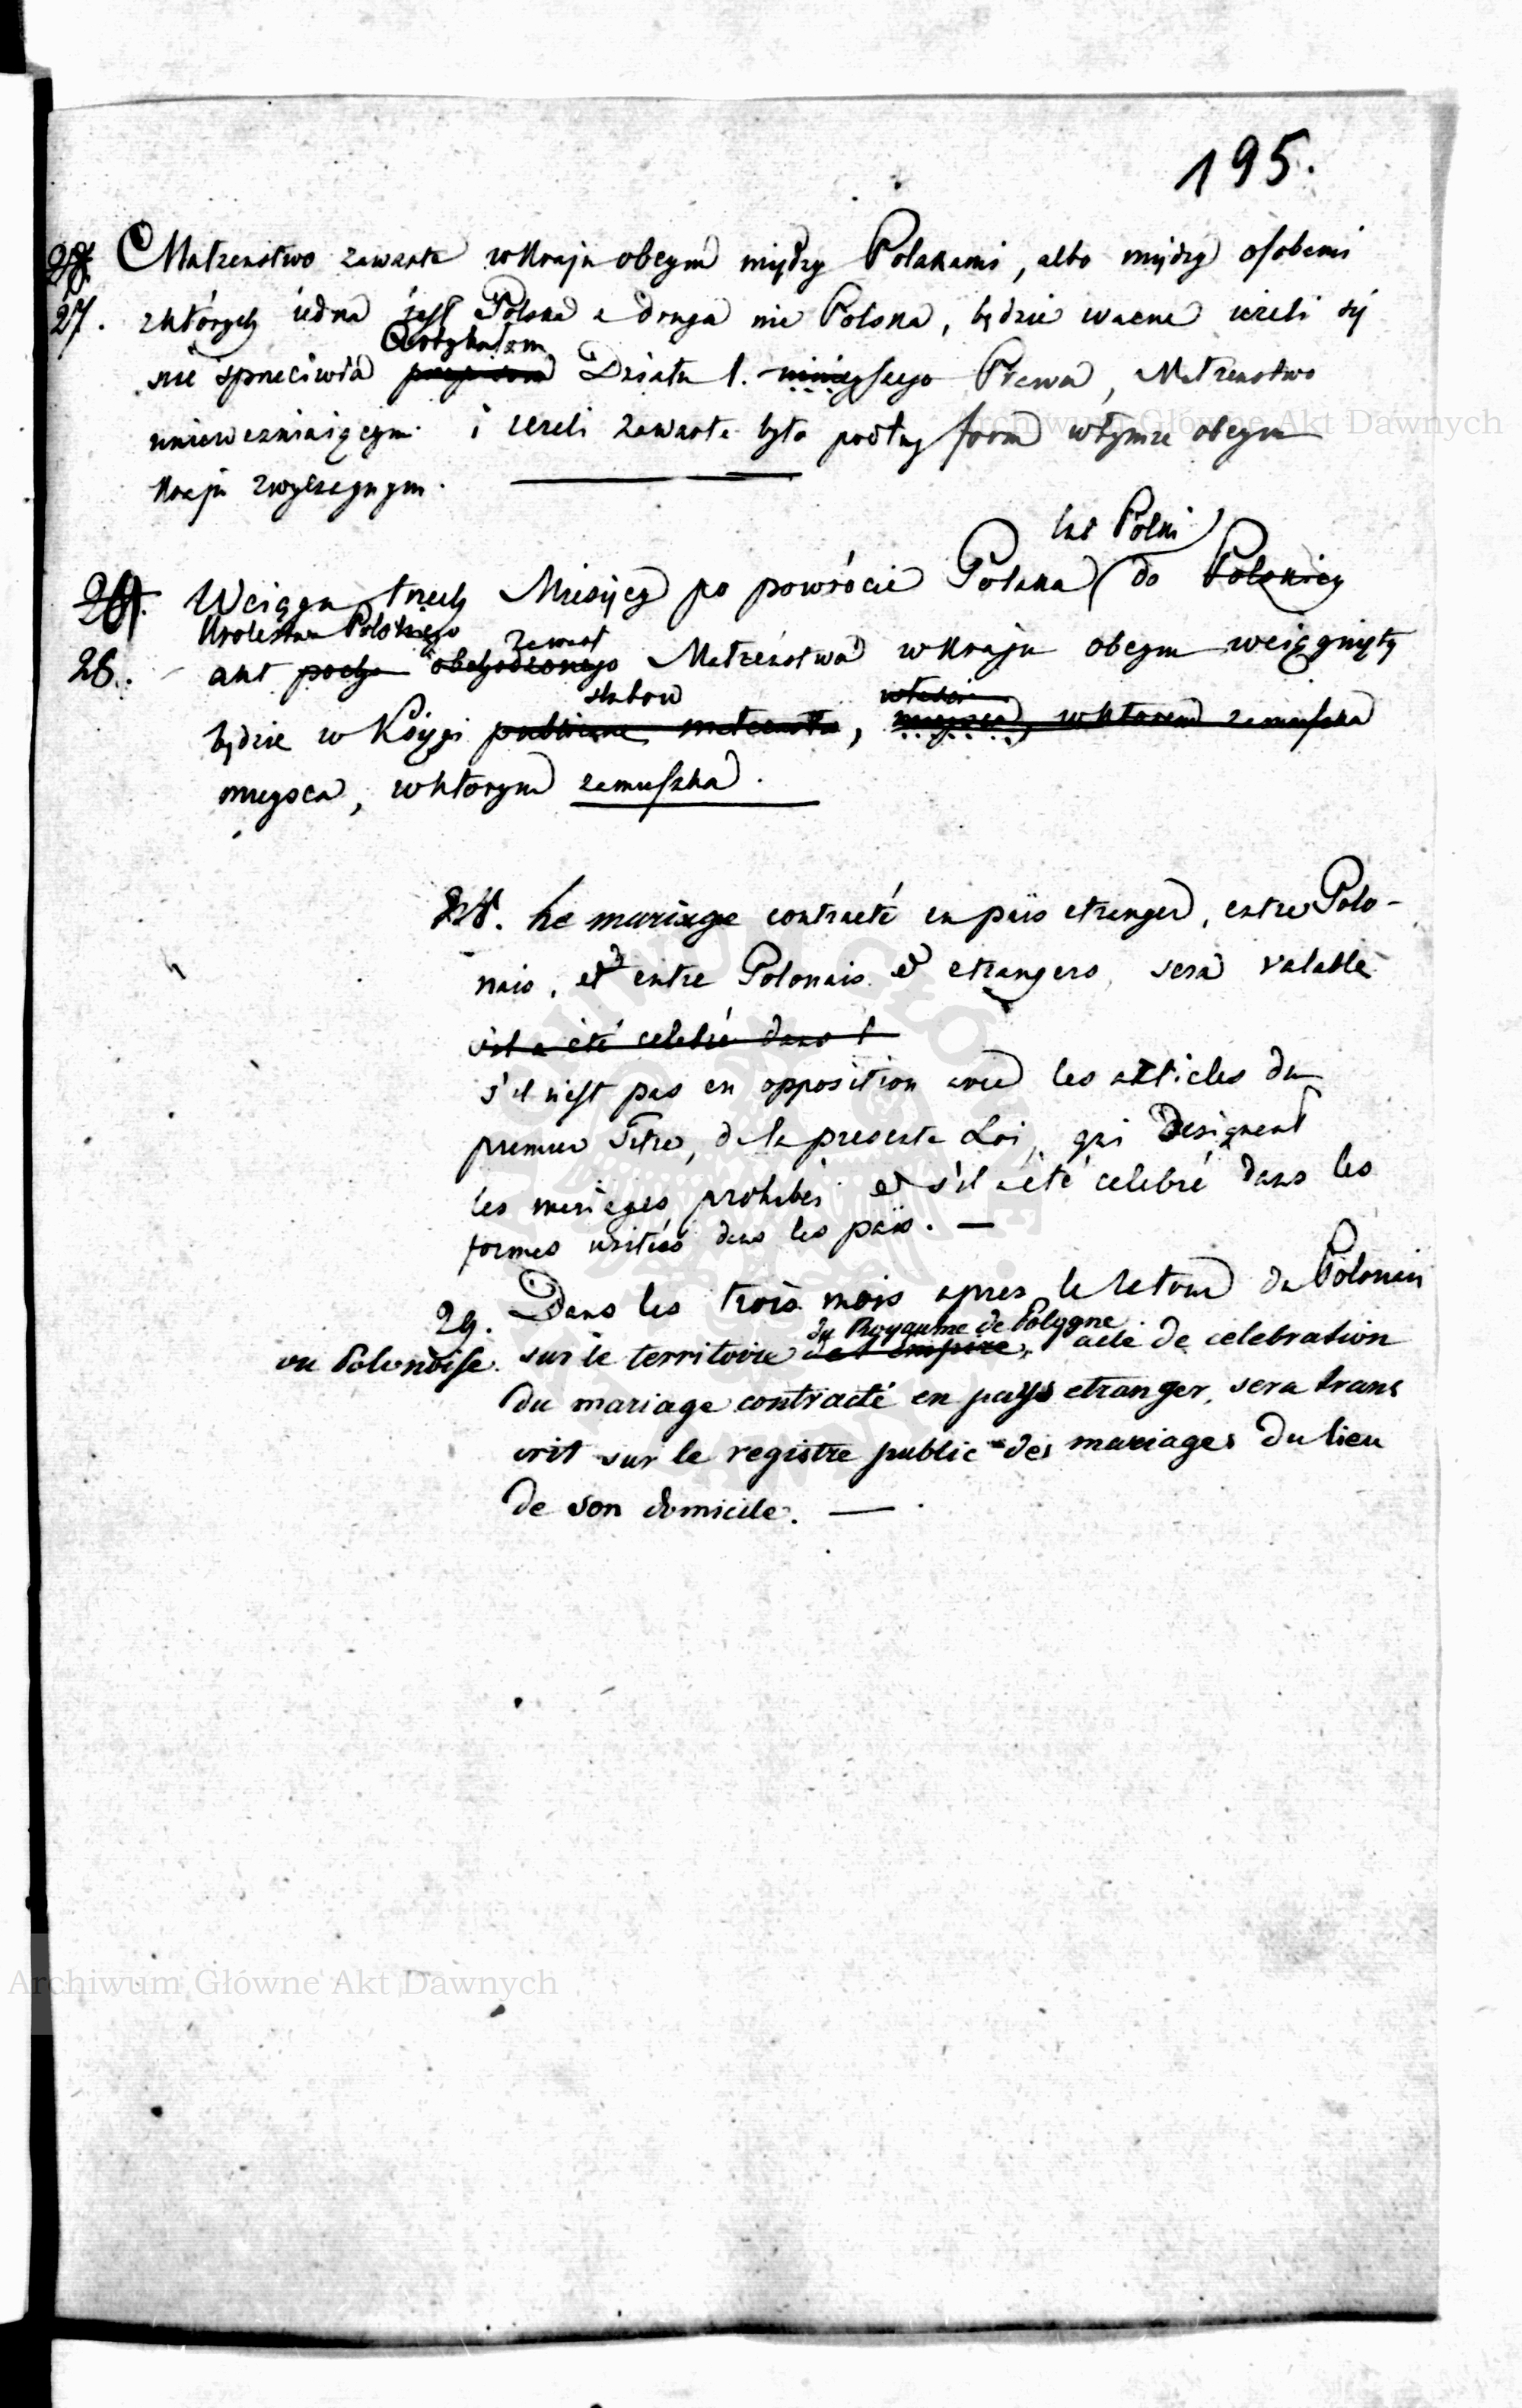 195.
28. Małzenstwo zawarte w kraju obcym między Polakami, albo między osobami
27. z których iedna jest Polska a druga nie Polska, będzie wazne ieżeli się
Artykułom
nie sprzeciwia przepisom Działu 1. ninieyszego Prawa, Małzenstwo
unieważniaiącym i iezeli zawarte było podług form w tymze obcym
kraju zwyczaynym.
lub Polki
29. W ciągu trzech Miesięcy po powrócie Polaka do Polskiey
Krolestwa Polskiego zawart
28. akt obchodzonego Małzeństwa w kraju obcym wciągnięty
slubow
będzie w Księgi publiczne małzenstw, mieysca, w ktorem zamieszka
mieysca, w ktorym zamieszka.
28. Le mariage contracté en païs etranger, entre Polo-
nais, et entre Polonais et etrangers, sera valable
s'il a été celebré dans l
s'il n'est pas en opposition avec les articles du
premier Titre, de la presente Loi, qui designent
les mariages prohibés et s'il a été celebré dans les
formes usitées dans les païs. —
29. Dans les trois mois apres le retour du Polonais
du Royaume de Pologne
ou Polonoise. sur le territoire de l'empire, l'acte de celebration
du mariage contracté en pays etranger, sera trans
crit sur le registre public des mariages du lieu
de son domicile. —
Archiwum Główne Akt Dawnych
Archiwum Główne Akt Dawnych